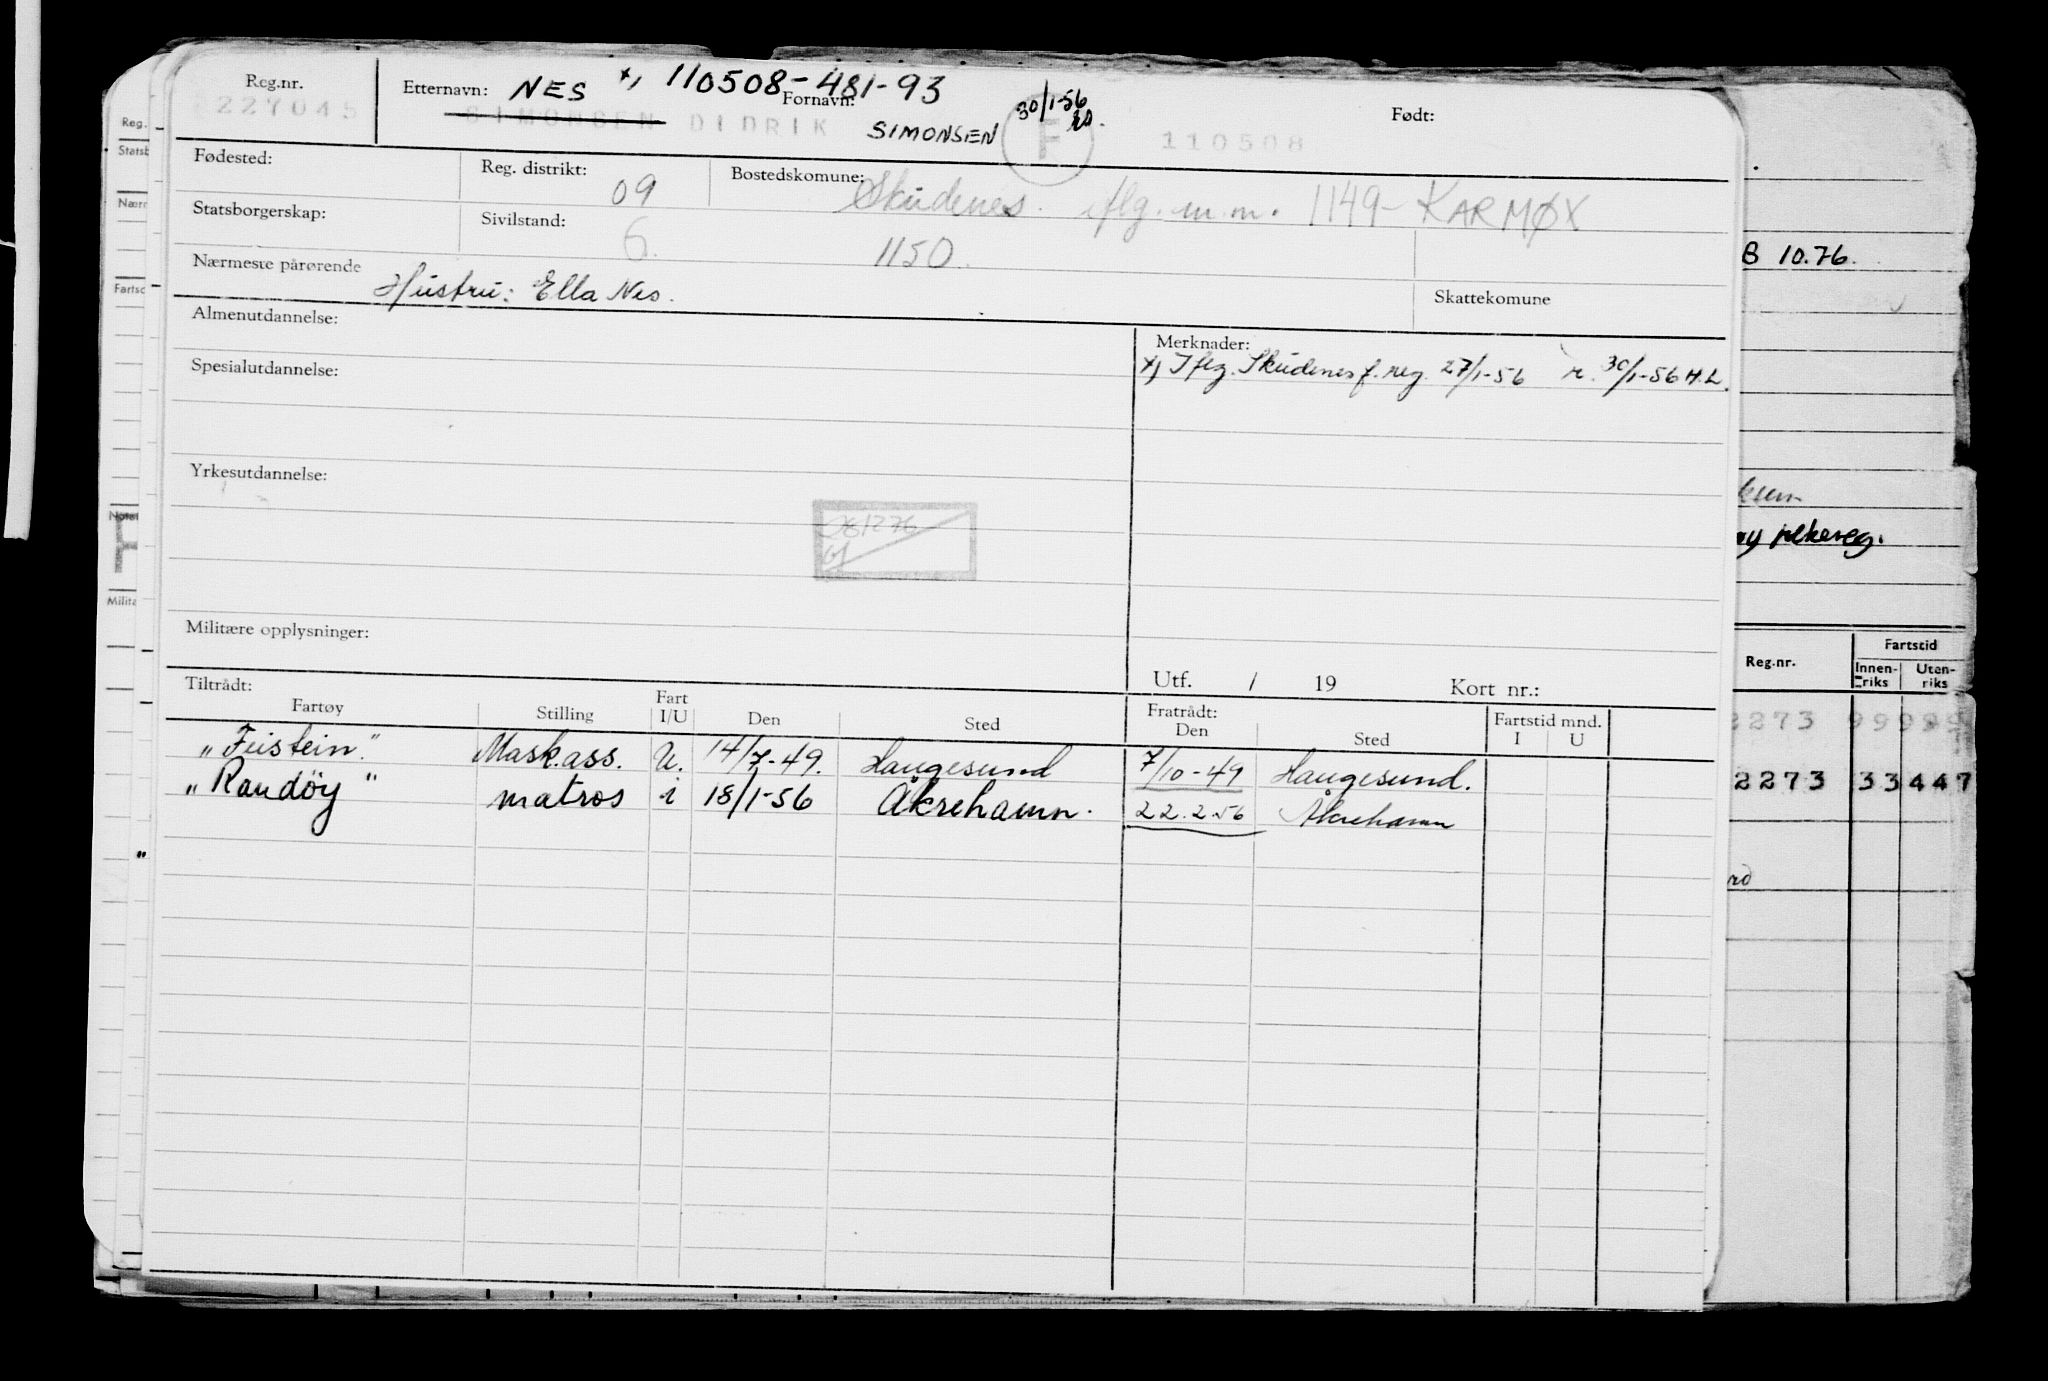 Reg.nr.
227045
Etternavn: NES x, 110508-481-93
Fornavn:
SIMONSEN DIDRIK SIMONSEN
30/1-56
F
Født:
110508
Fødested:
Reg. distrikt: 09
Bostedskomune: Skudenes. iflg. m.m. 1149- KARMØY
Statsborgerskap:
Sivilstand: 6.
1150.
Nærmeste pårørende Hustru: Ella Nes.
Skattekomune
Almenutdannelse:
Merknader:
x) Iflg. Skudenes f. reg. 27/1-56 r. 30/1-56 H.L.
Spesialutdannelse:
Yrkesutdannelse:
281276
Militære opplysninger:
Utf. / 19 Kort nr.:
Tiltrådt:
Fartøy Stilling Fart I/U Den Sted Fratrådt: Den Sted Fartstid mnd. I U
"Feistein" Mask.ass. U. 14/7-49. Haugesund 7/10-49 Haugesund.
"Randöy" matros i 18/1-56 Åkrehamn. 22.2.56 Åkrehamn
Reg.
Statsb
Nærn
Fartsc
Notat
Milita
"
B 10.76.
kum
Reg.nr.
Fartstid
Innen-riks
Uten-riks
2273 99 999
2273 33 447